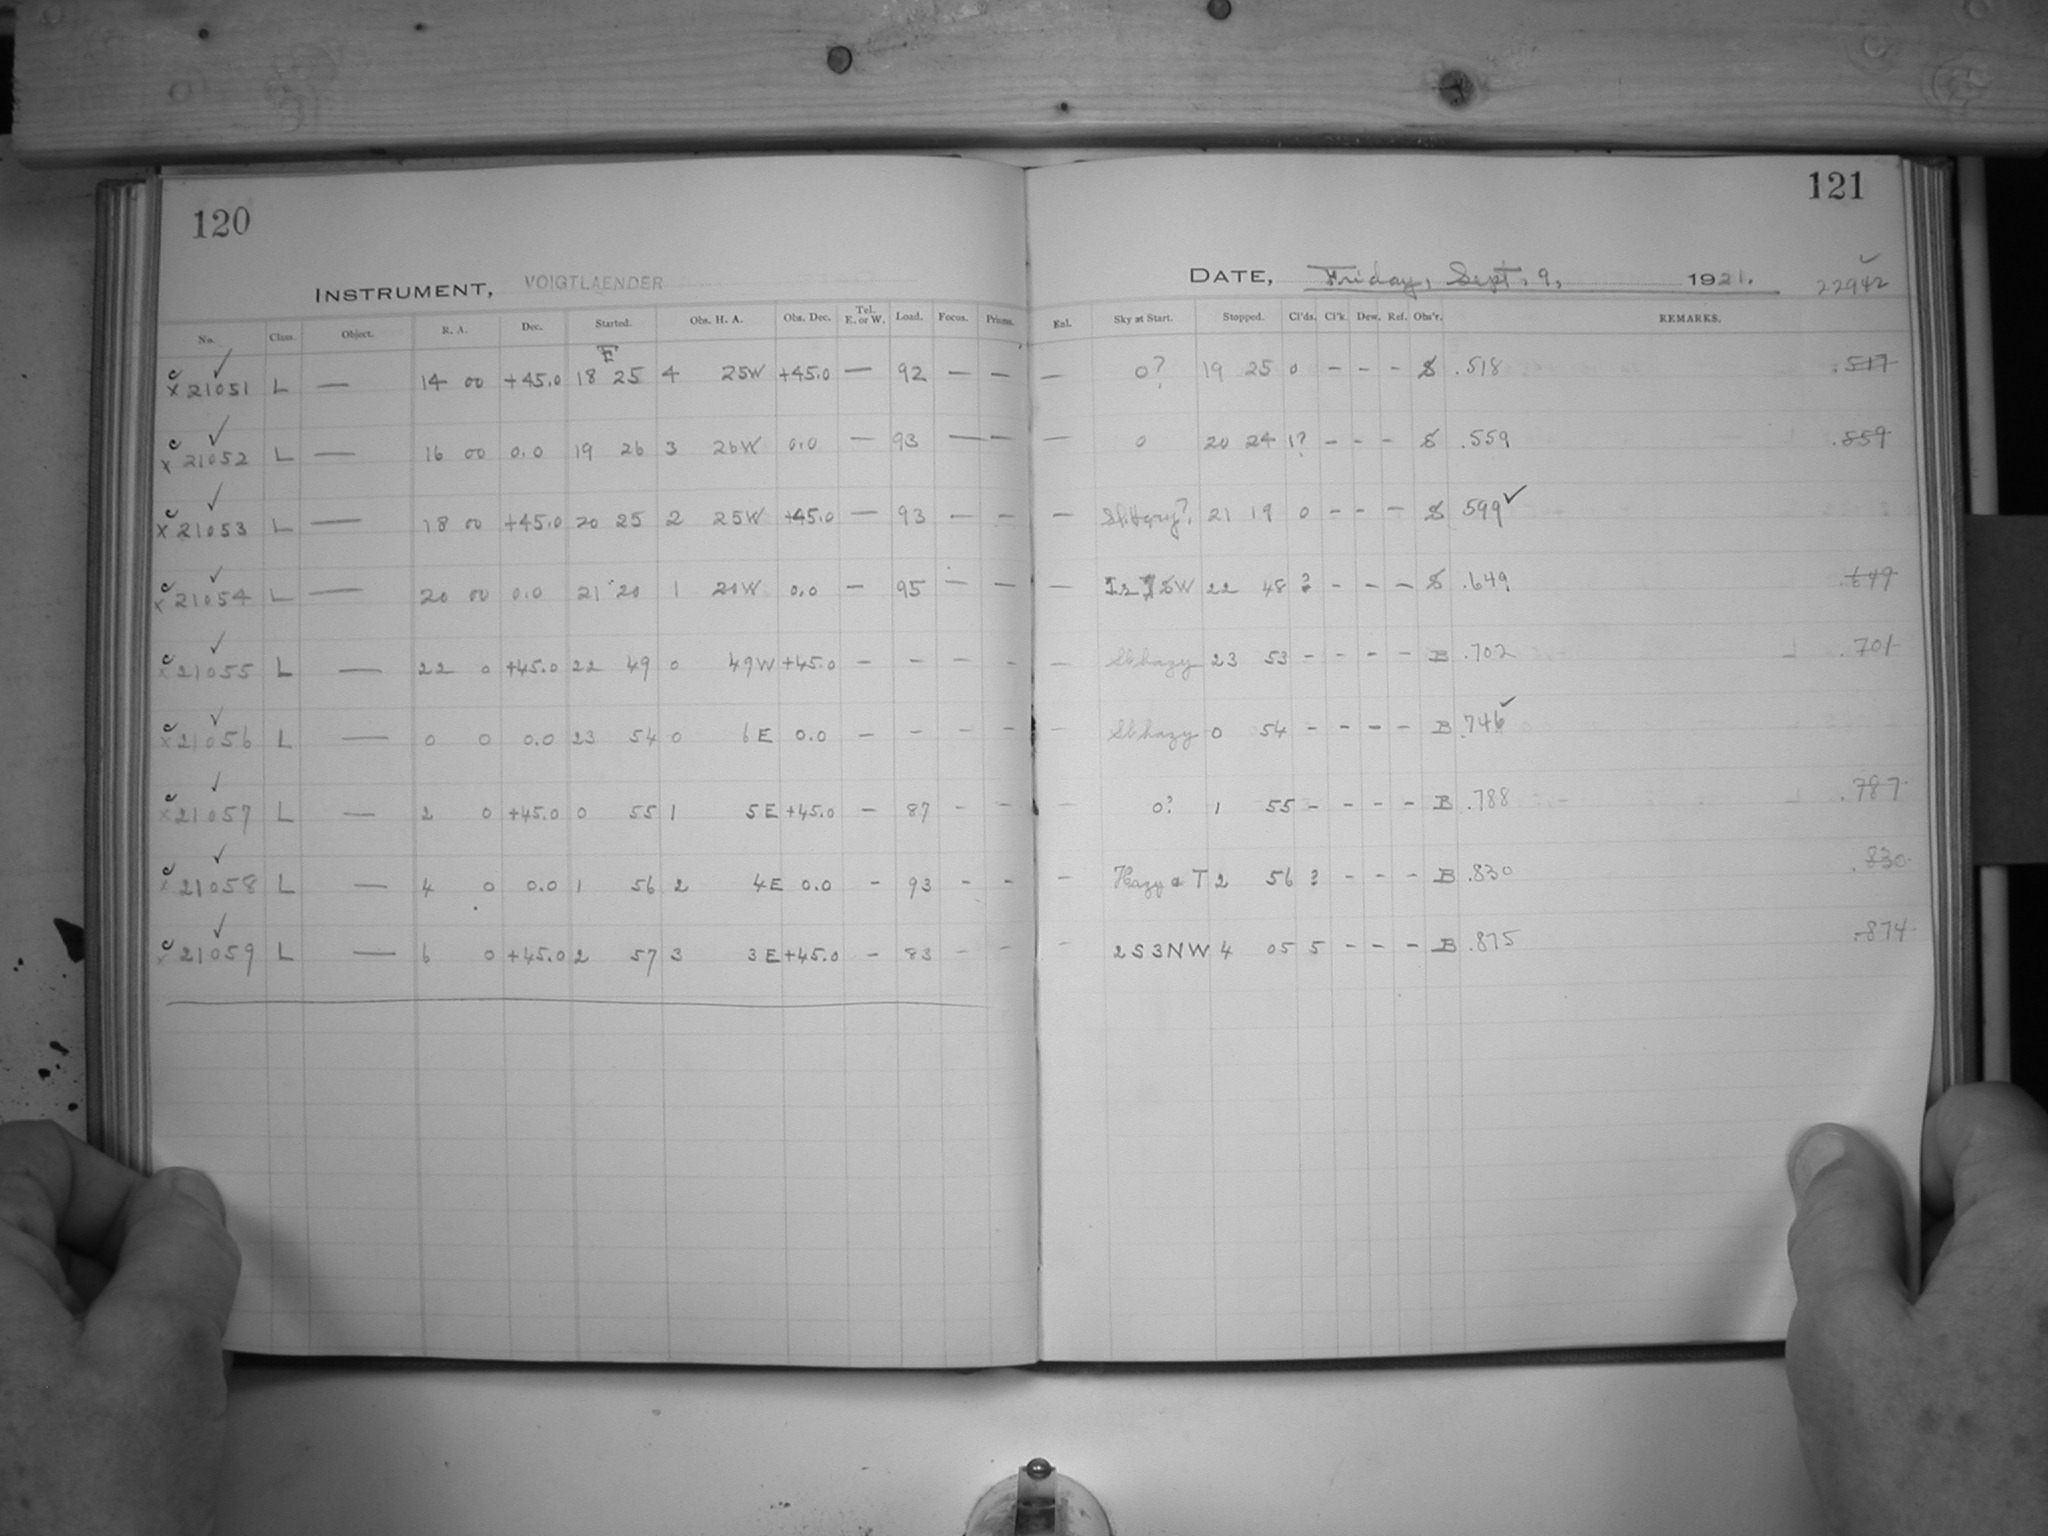 120
121
INSTRUMENT, VOIGTLAENDER
DATE, Friday, Sept. 9, 1921. 22942
No. Class. Object. R. A. Dec. Started. Obs. H. A. Obs. Dec. Tel. E. or W. Load. Focus. Prisms. Enl. Sky at Start. Stopped. Cl'ds. Cl'k. Dew. Ref. Obs'r. REMARKS.
E
c x 21051 L — 14 00 +45.0 18 25 4 25W +45.0 — 92 — — — 0? 19 25 0 - - - S .518 .517
c x 21052 L — 16 00 0.0 19 26 3 26W 0.0 — 93 — — — 0 20 24 1? - - - S .559 .859
c x 21053 L — 18 00 +45.0 20 25 2 25W +45.0 — 93 — — — Sl. Hazy? 21 19 0 - - - S 599
c x 21054 L — 20 00 0.0 21 20 1 20W 0.0 — 95 — — — 22 48 ? - - - S .649 .649
c x 21055 L — 22 0 +45.0 22 49 0 49W +45.0 - - - - - Sl hazy 23 53 - - - - B .702 .701
c x 21056 L — 0 0 0.0 23 54 0 6E 0.0 - - - - - Sl hazy 0 54 - - - - B .746
c x 21057 L — 2 0 +45.0 0 55 1 5E +45.0 - 87 - - - 0? 1 55 - - - - B .788 .787
c x 21058 L — 4 0 0.0 1 56 2 4E 0.0 - 93 - - - Hazy & T 2 56 ? - - - B .830 .830
c x 21059 L — 6 0 +45.0 2 57 3 3E +45.0 - 83 - - - 2S 3NW 4 05 5 - - - B .875 .874